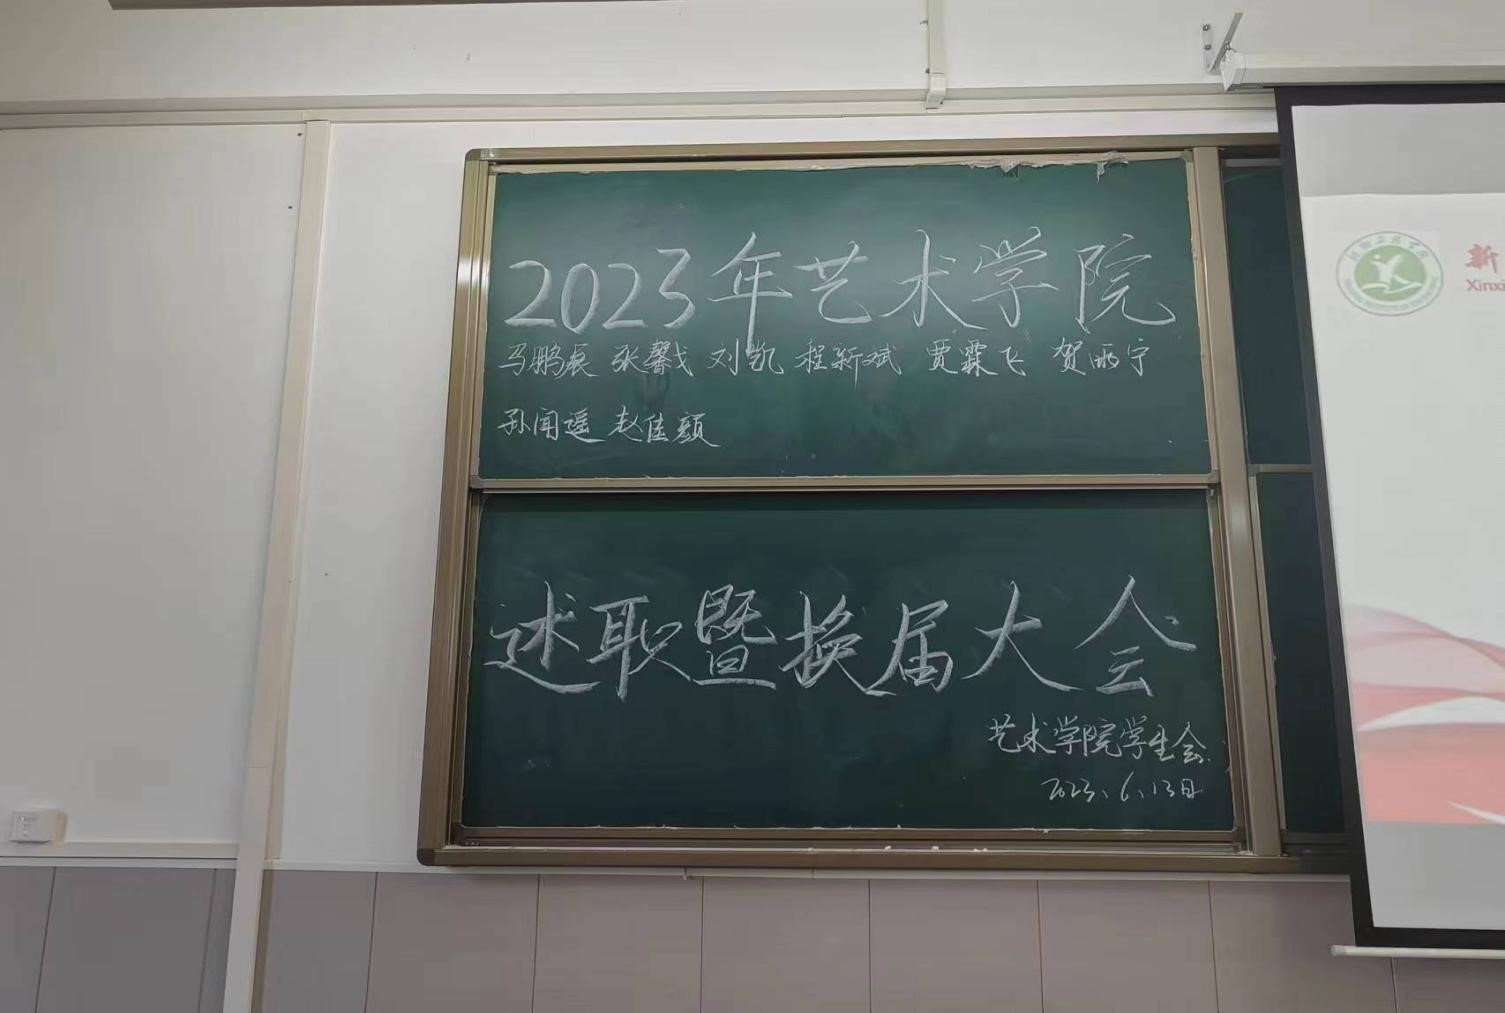 2023年艺术学院
马鹏展 张馨戈 刘凯 程新斌 贾霖飞 贺雨宁
孙闻遥 赵佳颖
述职暨换届大会
艺术学院学生会
2023、6、13日
Xinxi